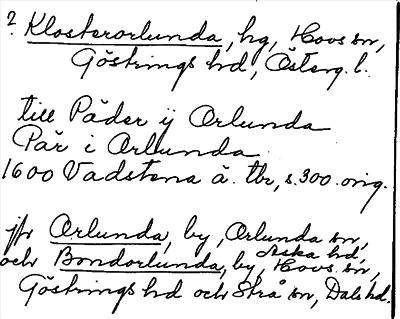 ? Klosterorlunda, hg, Hovs sn,
Göstrings hd, Österg. l.
till Päder ÿ Orlunda
Pär i Orlunda
1600 Vadstena ä. tbr, s. 300. orig.
jfr Orlunda, by, Orlunda sn,
Aska hd,
och Bondorlunda, by, Hovs sn,
Göstrings hd och Strå sn, Dals hd.